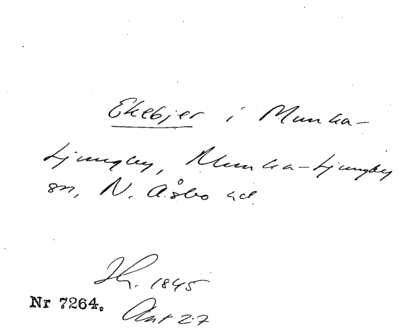 Ekebjer i Munka-
Ljungby, Munka-Ljungby
sn, N. Åsbo hd.
Jh. 1845
Nr 7264. Ant 27